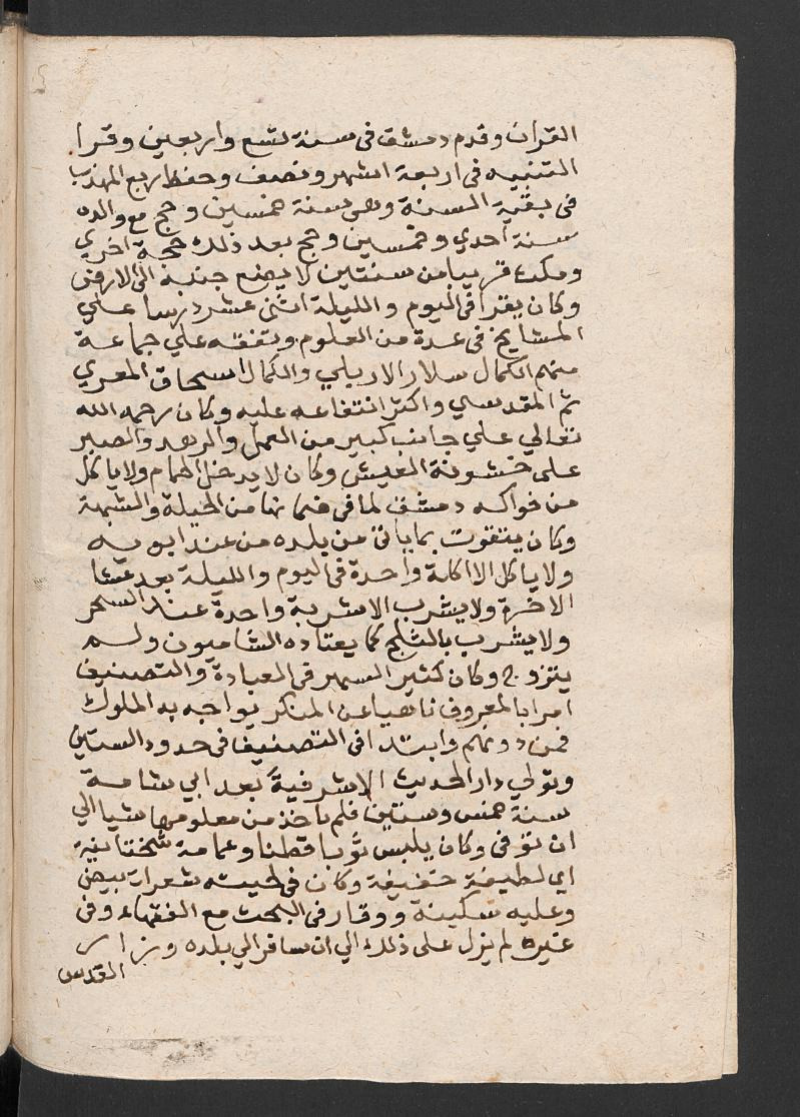 القران وقدم دمشق في سنة تسع واربعين وقرا
التنبيه في اربعة اشهر ونصف وحفظ ربع المهذب
في بقية السنة وهي سنة خمسين وحج مع والده
سنة احدي وخمسين وحج بعد ذلك حجة اخري
ومكث قريبا من سنتين لا يضع جنبه الي الارض
وكان يقرا في اليوم والليلة اثني عشر درسا علي
المشايخ في عدة من العلوم وتفقه علي جماعة
منهم الكمال سلار الاربلي والكمال اسحاق المعري
ثم المقدسي واكثر انتفاعه عليه وكان رحمه الله
تعالي علي جانب كبير من العمل والزهد والصبر
على خشونة العيش وكان لا يدخل الحمام ولا ياكل
من فواكه دمشق لما في ضمانها من الحيلة والشبهة
وكان يتقوت بما ياتي من بلده من عند ابويه
ولا ياكل الا اكلة واحدة في اليوم والليلة بعد عشا
الاخرة ولا يشرب الا شربة واحدة عند السحر
ولا يشرب بالثلج كما يعتاده الشاميون ولم
يتزوج وكان كثير السهر في العبادة والتصنيف
امرا بالمعروف ناهيا عن المنكر يواجه به الملوك
فمن دونهم وابتدا في التصنيف في حدود الستين
وتولي دار الحديث الاشرفية بعد ابي شامة
سنة خمس وستين فلم ياخذ من معلومها شيا الي
ان توفي وكان يلبس ثوبا قطنا وعمامة سختيانية
اي لطيفة خفيفة وكان في لحيته شعرات بيض
وعليه سكينة ووقار في البحث مع الفقهاء وفي
غيره لم يزل على ذلك الي ان سافر الي بلده وزار
القدس